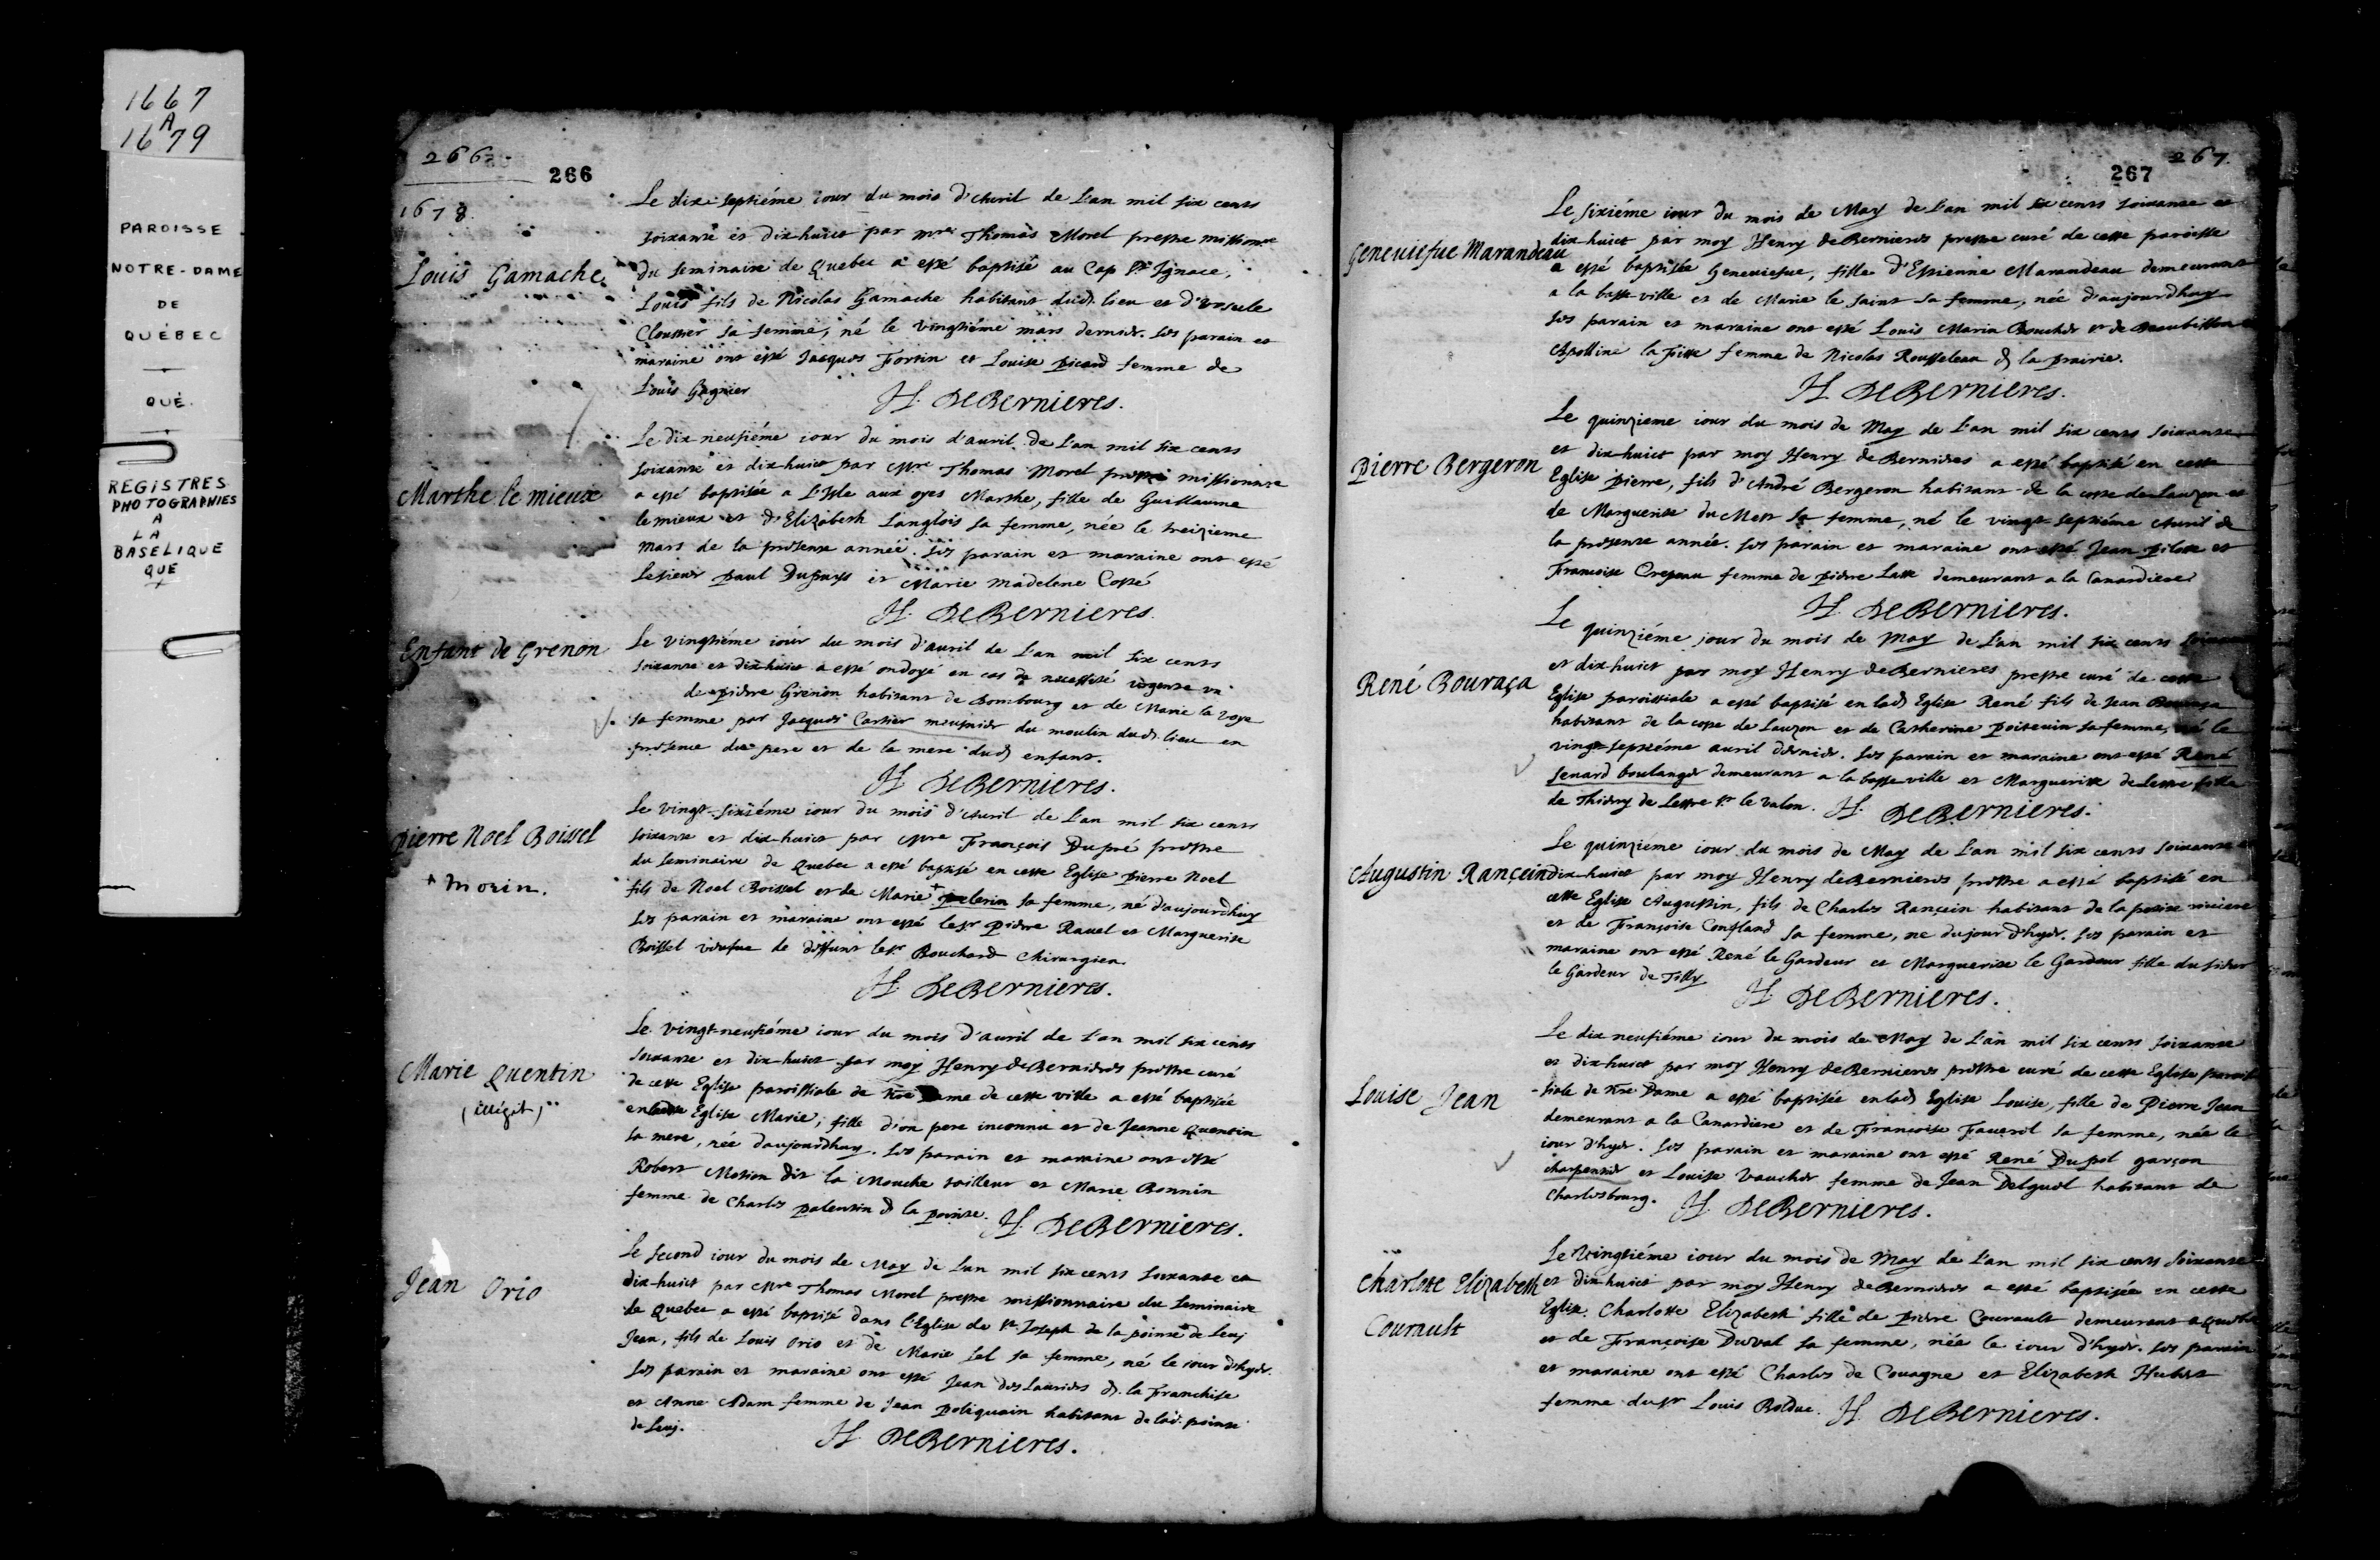 1667
A
1679
PAROISSE
NOTRE-DAME
DE
QUÉBEC
QUÉ.
REGISTRES
PHOTOGRAPHIES
A
LA
BASELIQUE
QUE
266
266
1678.
Louis Gamache.
Le dix-septiéme iour du mois d'Auril de L'an mil six cents
soixante et dix-huict par mre Thomas Morel prestre missionnre
du seminaire de Quebec a esté baptisé au Cap St Ignace,
Louis fils de Nicolas Gamache habitant dud. lieu et d'Ursule
Cloustier sa femme, né le vingtiéme mars dernier. Les parain et
maraine ont esté Jacques Fortin et Louise picard femme de
Louis Gagnier
H. DeBernieres.
Marthe le mieux
Le dix neufiéme iour du mois d'auril de L'an mil six cents
soixante et dix-huict par Mre Thomas Morel prestre missionnre
a esté baptisée a L'Isle aux oyes Marthe, fille de Guillaume
le mieux et d'Elizabeth Langlois sa femme, née le treizieme
Mars de la presente année. Les parain et maraine ont esté
Lesieur Paul Dupuys et Marie Madelene Costé
H. DeBernieres.
Enfant de Grenon
Le vingtiéme iour du mois d'auril de L'an mil six cents
soixante et dix-huict a esté ondoyé en cas de necessité urgente un
de pierre Grenon habitant de Bombourg et de Marie la voye
sa femme par Jacques Cartier meusnier du moulin dud. lieu en
presence du pere et de la mere dud. enfant.
H. DeBernieres.
Pierre Noel Boissel
+ morin.
Le vingt-sixiéme iour du mois d'Auril de L'an mil six cents
soixante et dix-huict par Mre François Dupré prestre
du seminaire de Quebec a esté baptisé en cette Eglise pierre Noel
fils de Noel Boissel et de Marie + pelerin sa femme, né d'aujourdhuy
Les parain et maraine ont esté le sr Pierre Rauel et Marguerite
Boissel veufue de deffunt le sr. Bouchard Chirurgien.
H. DeBernieres.
Marie Quentin
(illégit)
Le vingt-neufiéme iour du mois d'auril de L'an mil six cents
soixante et dix-huict par moy Henry de Bernieres prestre curé
de cette Eglise paroissiale de Nre Dame de cette ville a esté baptisée
en lade Eglise Marie, fille d'un pere inconnu et de Jeanne Quentin
sa mere, née daujourdhuy. Les parain et maraine ont esté
Robert Motion dit la Mouche tailleur et Marie Bonnin
femme de Charles palentin d. la pointe.
H. DeBernieres.
Jean Orio
Le second iour du mois de May de L'an mil six cents soixante et
dix-huict par Mre Thomas Morel prestre missionnaire du seminaire
de Quebec a esté baptisé dans l'Eglise de St. Joseph de la pointe de Leuj
Jean, fils de Louis Orio et de Marie Sel sa femme, né le iour d'hyer.
Les parain et maraine ont esté Jean des Lauriers d. la Franchise
et Anne Adam femme de Jean poliquain habitant de lad. pointe
de Leuj.
H. DeBernieres.
267.
267
Geneuiefue Marandeau
Le sixiéme iour du mois de May de L'an mil six cents soixante et
dix-huict par moy Henry de Bernieres prestre curé de cette paroisse
a esté baptisée Geneuiefue, fille d'Estienne Marandeau demeurant
a la basse-ville et de Marie le saint sa femme, née d'aujourdhuy
Les parain et maraine ont esté Louis Marin Boucher sr de
Apolline la fitte femme de Nicolas Rousseleau d. la prairie.
H. DeBernieres.
Pierre Bergeron
Le quinzieme iour du mois de May de L'an mil six cents soixante
et dix-huict par moy Henry de Bernieres a esté baptisé en cette
Eglise pierre, fils d'André Bergeron habitant de la coste de Lauzon et
de Marguerite du Mets sa femme, né le vingt-septiéme Auril de
la presente année. Les parain et maraine ont esté Jean pilote et
Francoise Crepeau femme de pierre Laste demeurant a la Canardiere
H. DeBernieres.
René Bouraça
Le quinziéme jour du mois de May de L'an mil six cents soixante
et dix-huict par moy Henry de Bernieres prestre curé de cette
Eglise paroissiale a esté baptisé en lad. Eglise René fils de Jean Bouraça
habitant de la coste de Lauzon et de Catherine poiteuin sa femme, né le
vingt-septiéme auril dernier. Les parain et maraine ont esté René
Senard boulanger demeurant a la basse-ville et Marguerite de Lestre fille
de Thierry de Lestre sr le Valon.
H. DeBernieres.
Augustin Rançein
Le quinziéme iour du mois de May de L'an mil six cents soixante et
dix-huict par moy Henry de Bernieres prestre a esté baptisé en
cette Eglise Augustin, fils de Charles Rançein habitant de la petite riuiere
et de Françoise Confland sa femme, ne du jour d'hyer. Les parain et
maraine ont esté René le Gardeur et Marguerite le Gardeur fille du sieur
le Gardeur de Tilly
H. DeBernieres.
Louise Jean
Le dix neufiéme iour du mois de May de L'an mil six cents soixante
et dix-huict par moy Henry de Bernieres prestre curé de cette Eglise parois-
-siale de Nre Dame a esté baptisée en lad. Eglise Louise, fille de Pierre Jean
demeurant a la Canardiere et de Françoise Fauerol sa femme, née le
iour d'hyer. Les parain et maraine ont esté René Dupol garçon
charpentier et Louise Vaucher femme de Jean Delguel habitant de
Charlesbourg.
H. DeBernieres.
Charlotte Elizabeth
Courault
Le Vingtiéme iour du mois de May de L'an mil six cents soixante
et dix-huict par moy Henry de Bernieres a esté baptisée en cette
Eglise Charlotte Elizabeth fille de Pierre Courault demeurant a Quebec
et de Françoise Duval sa femme, née le iour d'hyer. Les parain
et maraine ont esté Charles de Couagne et Elizabeth Hubert
femme du sr Louis Bolduc.
H. DeBernieres.